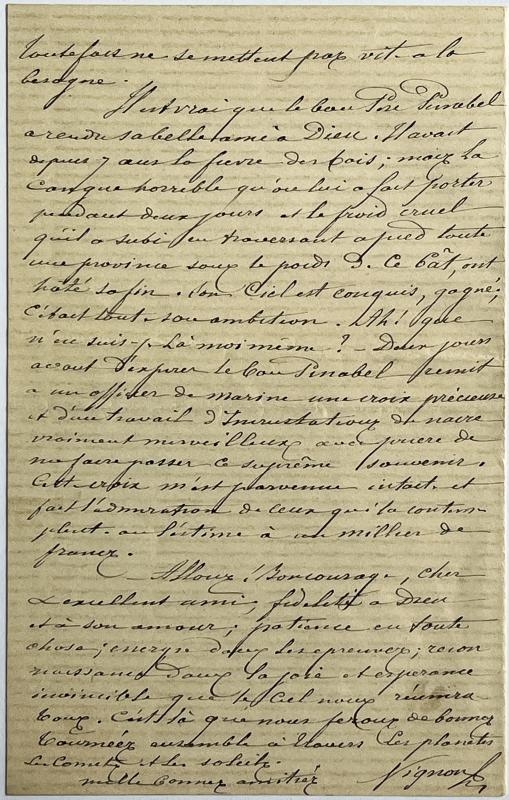 toutefois ne se mettent pas vite a la
besogne.
Il est vrai que le bon Père Pinabel
a rendu sa belle ame à Dieu. Il avait
depuis 7 ans la fievre des bois ; mais la
Cangue horrible qu'on lui a fait porter
pendant deux jours et le froid cruel
qu'il a subi en traversant a pied toute
une province sous le poids d. ce bât, ont
haté sa fin. Son Ciel est conquis, gagné ;
C'était tout son ambition. Ah! que
n'en suis-j. là moi même ? - Deux jours
avant d'expirer le bon Pinabel remit
a un officier de marine une croix précieuse
et d'un travail d'Incrustations de nacre
vraiment merveilleux avec priere de
me faire passer ce suprême souvenir.
Cette croix m'est parvenue intacte et
fait l'admiration de ceux qui la contem
plent. on l'estime à un millier de
francs.
- Allons ! Bon courage, cher
& excellent ami, fidelité a Dieu
et à son amour ; patience en toute
chose ; energie dans les epreuves ; recon
naissance dans la joie et esperance
invincible que le Ciel nous réunira
tous. C'est là que nous ferons de bonnes
Tournées ensemble à travers les planetes
les Cometes et les soleils.
mille bonnes amitiés Vignon